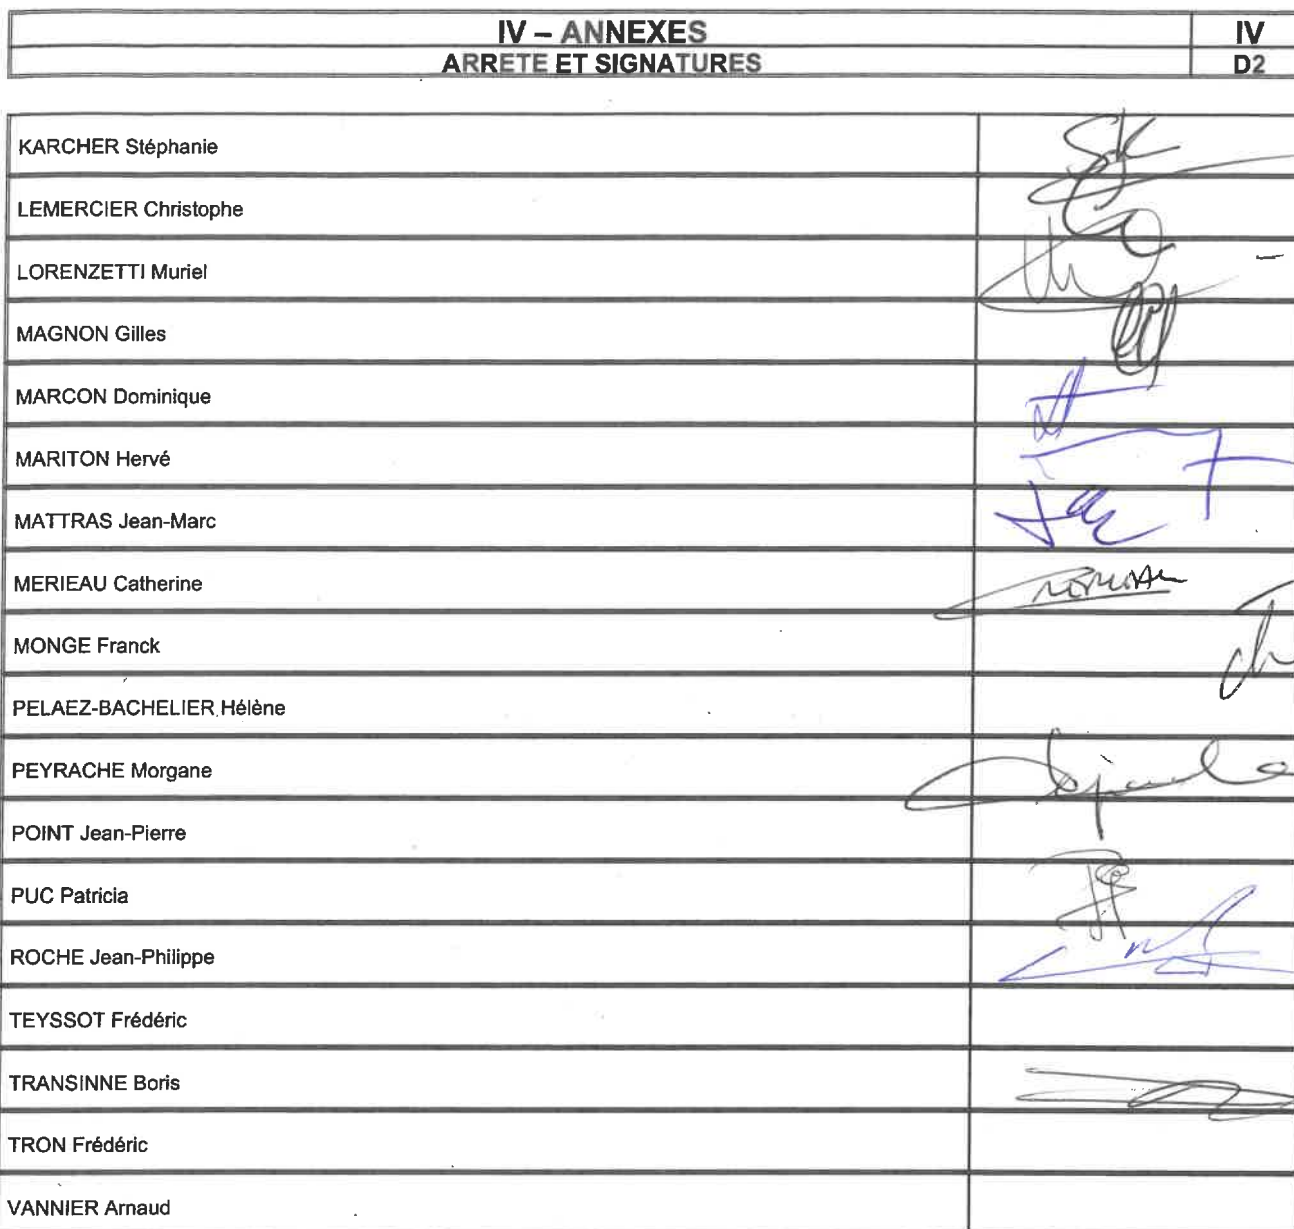 IV – ANNEXES
IV
ARRETE ET SIGNATURES
D2
KARCHER Stéphanie
LEMERCIER Christophe
LORENZETTI Muriel
MAGNON Gilles
MARCON Dominique
MARITON Hervé
MATTRAS Jean-Marc
MERIEAU Catherine
MONGE Franck
PELAEZ-BACHELIER Hélène
PEYRACHE Morgane
POINT Jean-Pierre
PUC Patricia
ROCHE Jean-Philippe
TEYSSOT Frédéric
TRANSINNE Boris
TRON Frédéric
VANNIER Arnaud